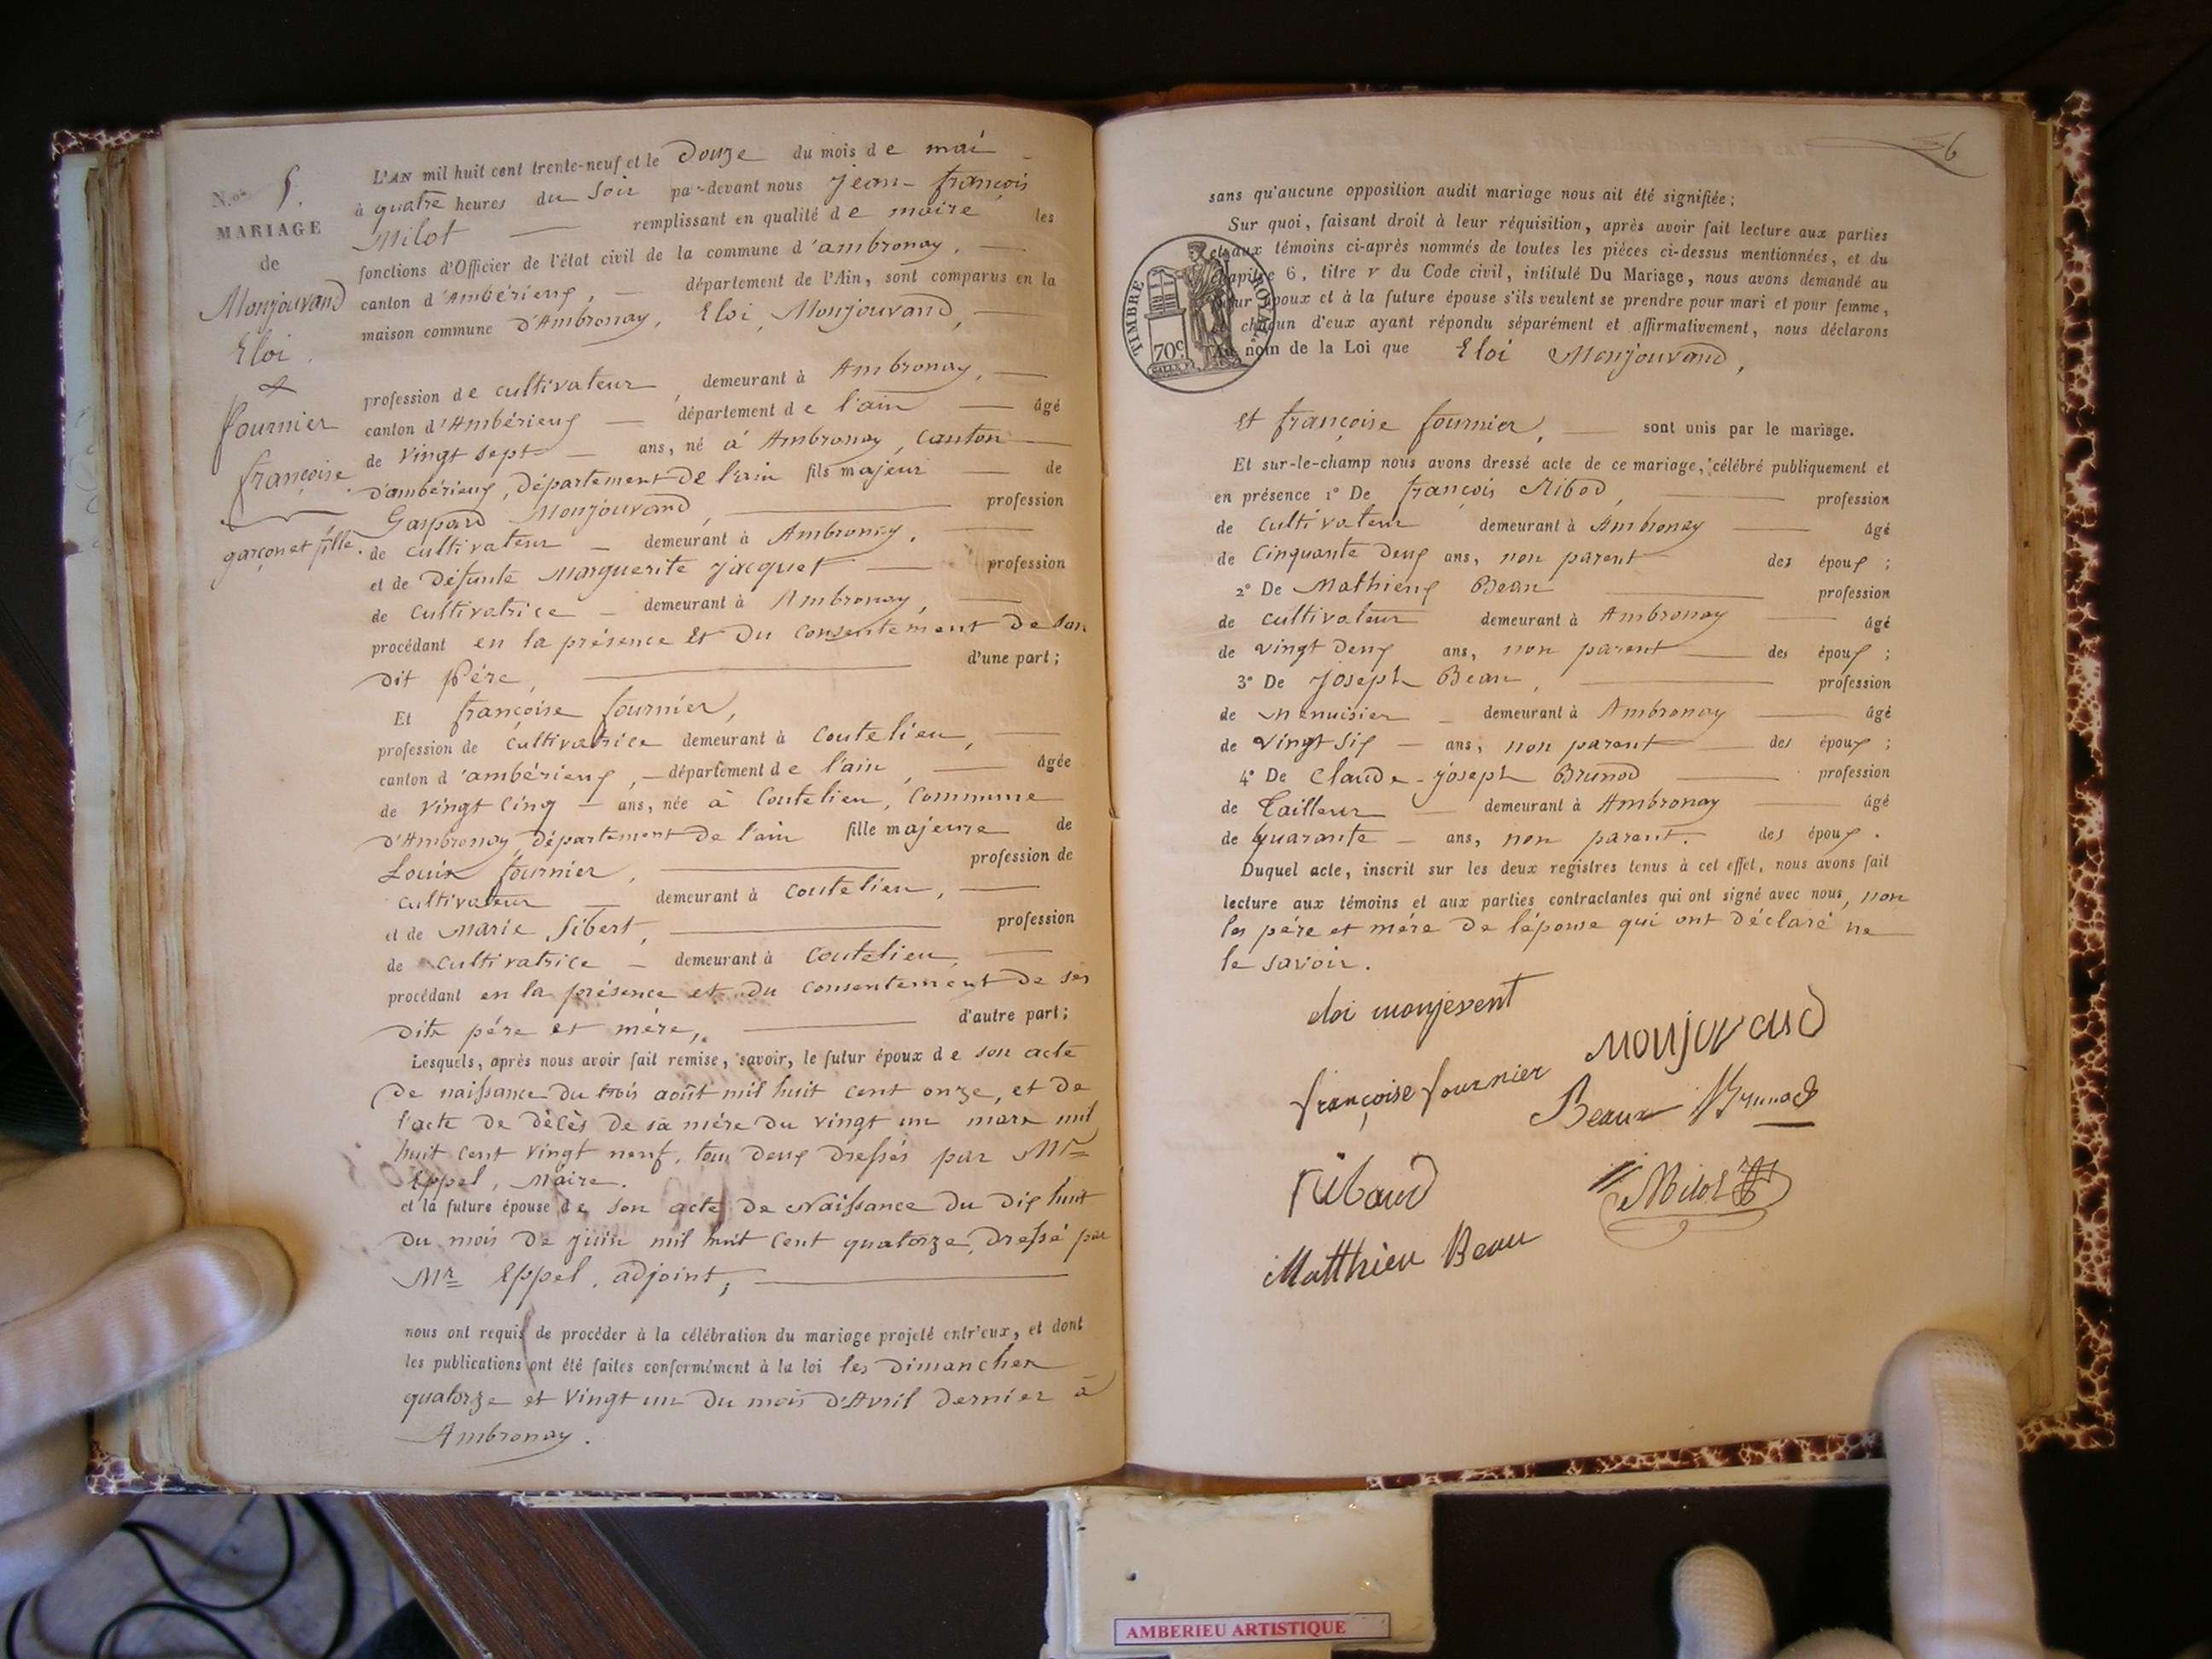 N.os 5.
MARIAGE
de
Monjouvand
Eloi.
&
fournier
françoise
garçon et fille.
L'AN mil huit cent trente-neuf et le Douze du mois de mai
à quatre heures du soir par-devant nous Jean-françois
Milot remplissant en qualité de maire les
fonctions d'Officier de l'état civil de la commune d'ambronay,
canton d'Ambérieux, département de l'Ain, sont comparus en la
maison commune d'Ambronay, Eloi, Monjouvand,
profession de cultivateur demeurant à Ambronay,
canton d'Ambérieux département de l'ain âgé
de vingt sept ans, né à Ambronay, canton
d'ambérieux, Département De l'ain fils majeur de
Gaspard Monjouvand, profession
de cultivateur demeurant à Ambronay,
et de Défunte Marguerite Jacquet profession
de cultivatrice demeurant à Ambronay,
procédant en la présence et Du consentement De son
dit Père, d'une part;
Et françoise fournier,
profession de cultivatrice demeurant à Coutelieu,
canton d'ambérieux, département de l'ain, âgée
de vingt cinq ans, née à Coutelieu, Commune
D'Ambronay, Département De l'ain fille majeure de
Louis fournier, profession de
cultivateur demeurant à Coutelieu,
et de Marie Sibert, profession
de cultivatrice demeurant à Coutelieu,
procédant en la présence et Du consentement De ses
dits père et mère, d'autre part;
Lesquels, après nous avoir fait remise, savoir, le futur époux de son acte
De naissance Du trois août mil huit cent onze, et De
l'acte De Décès De sa mère Du vingt un mars mil
huit cent vingt neuf, tous Deux Dressés par Mr
Eppel, Maire.
et la future épouse de son acte De Naissance Du Dix huit
Du mois De juin mil huit cent quatorze, Dressé par
Mr Eppel, adjoint,
nous ont requis de procéder à la célébration du mariage projeté entr'eux, et dont
les publications ont été faites conformément à la loi les Dimanches
quatorze et vingt un Du mois D'Avril Dernier à
Ambronay.
6
sans qu'aucune opposition audit mariage nous ait été signifiée;
Sur quoi, faisant droit à leur réquisition, après avoir fait lecture aux parties
et aux témoins ci-après nommés de toutes les pièces ci-dessus mentionnées, et du
chapitre 6, titre V du Code civil, intitulé Du Mariage, nous avons demandé au
futur époux et à la future épouse s'ils veulent se prendre pour mari et pour femme,
chacun d'eux ayant répondu séparément et affirmativement, nous déclarons
Au nom de la Loi que Eloi Monjouvand,
TIMBRE ROYAL
70c
et françoise fournier, sont unis par le mariage.
Et sur-le-champ nous avons dressé acte de ce mariage, célébré publiquement et
en présence 1° De françois Ribod, profession
de cultivateur demeurant à Ambronay âgé
de Cinquante Deux ans, non parent des époux;
2° De Mathieux Bean profession
de cultivateur demeurant à Ambronay âgé
de vingt Deux ans, non parent des époux;
3° De Joseph Bean, profession
de Menuisier demeurant à Ambronay âgé
de vingt six ans, non parent des époux;
4° De Claude-joseph Brunod profession
de Tailleur demeurant à Ambronay âgé
de quarante ans, non parent. des époux.
Duquel acte, inscrit sur les deux registres tenus à cet effet, nous avons fait
lecture aux témoins et aux parties contractantes qui ont signé avec nous, non
les père et mère De l'épouse qui ont Déclaré ne
le savoir.
eloi monjevent
Monjovand
françoise fournier
Beaux Brunod
ribaud
Milot
Matthieu Beau
AMBERIEU ARTISTIQUE